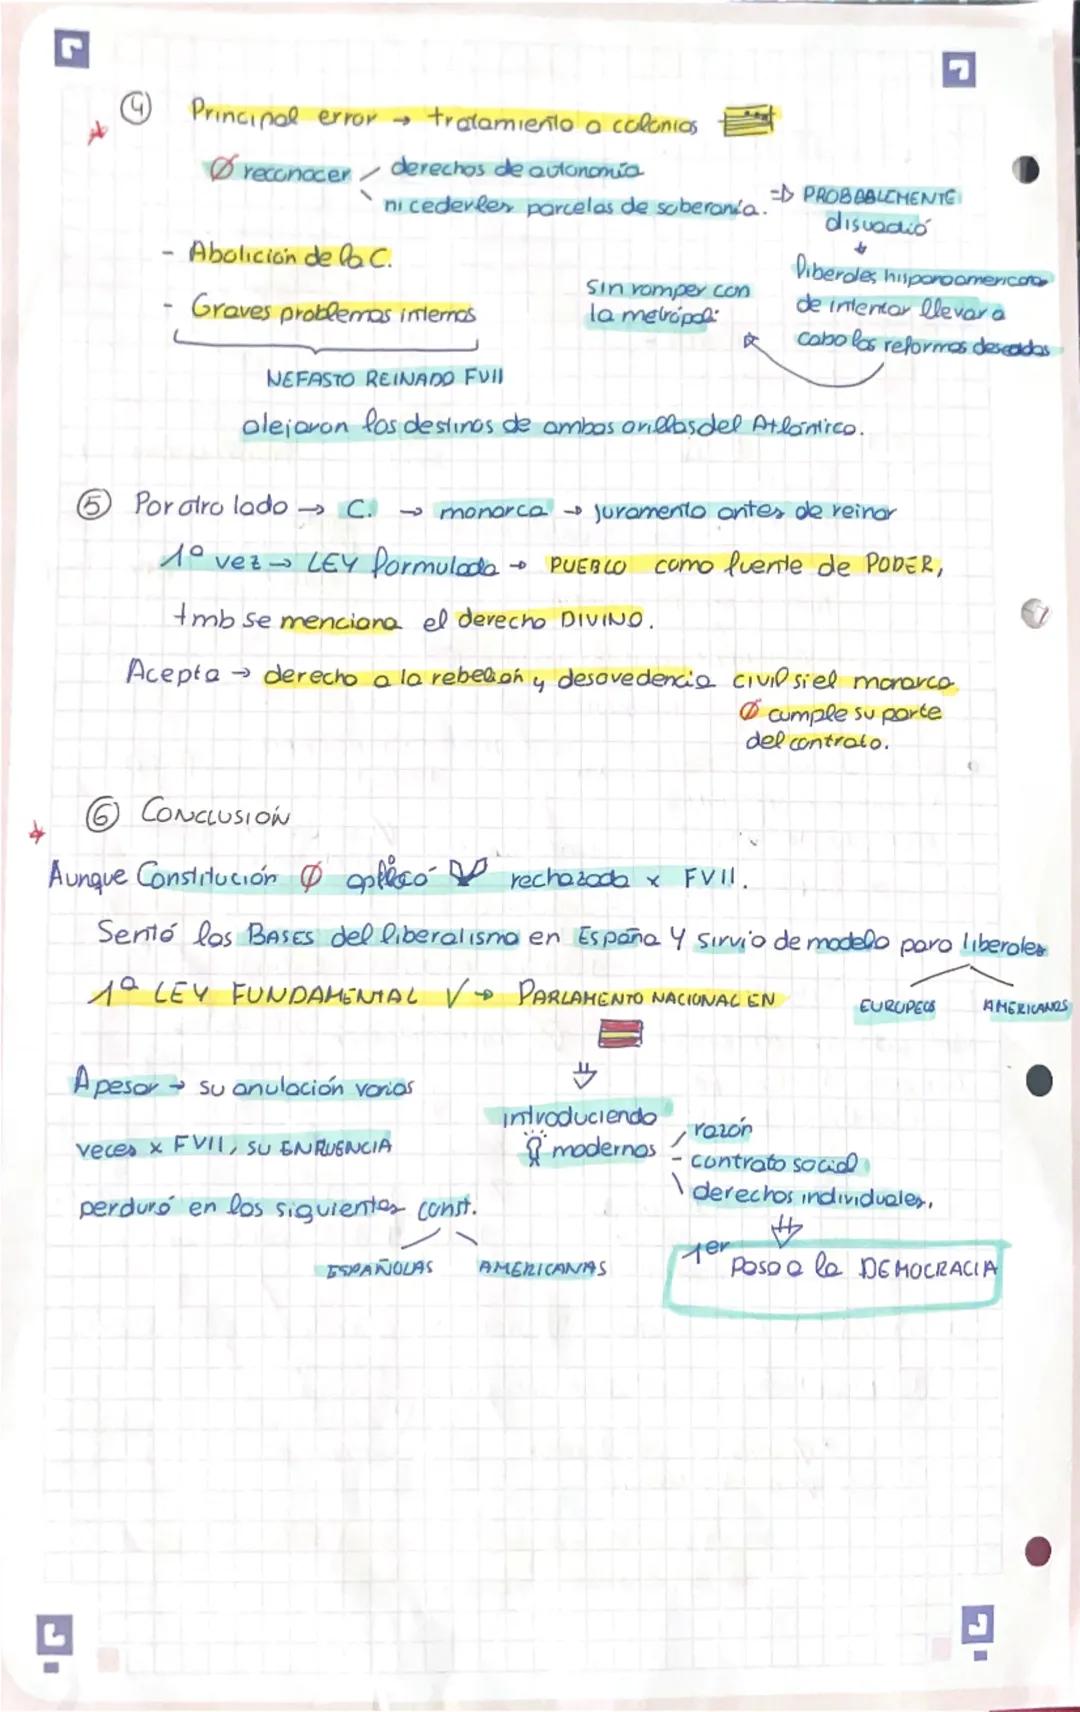 ④ Principal error → tratamiento a colonias
Ø reconocer derechos de autonomía
ni cederles parcelas de soberanía. => PROBABLEMENTE
disuadió
- Abolición de la C.
liberales hispanoamericanos
Sin romper con
de intentar llevar a
- Graves problemas internos
la metrópoli
cabo las reformas deseadas
NEFASTO REINADO FVII
alejaron los destinos de ambas orillas del Atlántico.
⑤ Por otro lado → C. → monarca → juramento antes de reinar
1º vez → LEY formulada → PUEBLO como fuente de PODER,
tmb se menciona el derecho DIVINO.
Acepta → derecho a la rebelión y desovedencia civil si el monarca
Ø cumple su parte
del contrato.
⑥ CONCLUSIÓN
Aunque Constitución Ø aplicó rechazada x FVII.
Sentó las BASES del liberalismo en España y sirvio de modelo para liberales
1ª LEY FUNDAMENTAL → PARLAMENTO NACIONAL EN
EUROPEOS AMERICANOS
A pesar → su anulación varias
introduciendo
razón
veces x FVII, SU
modernas
- contrato social
derechos individuales.
perduró en las siguientes const.
ESPAÑOLAS AMERICANAS
1er paso a la DEMOCRACIA